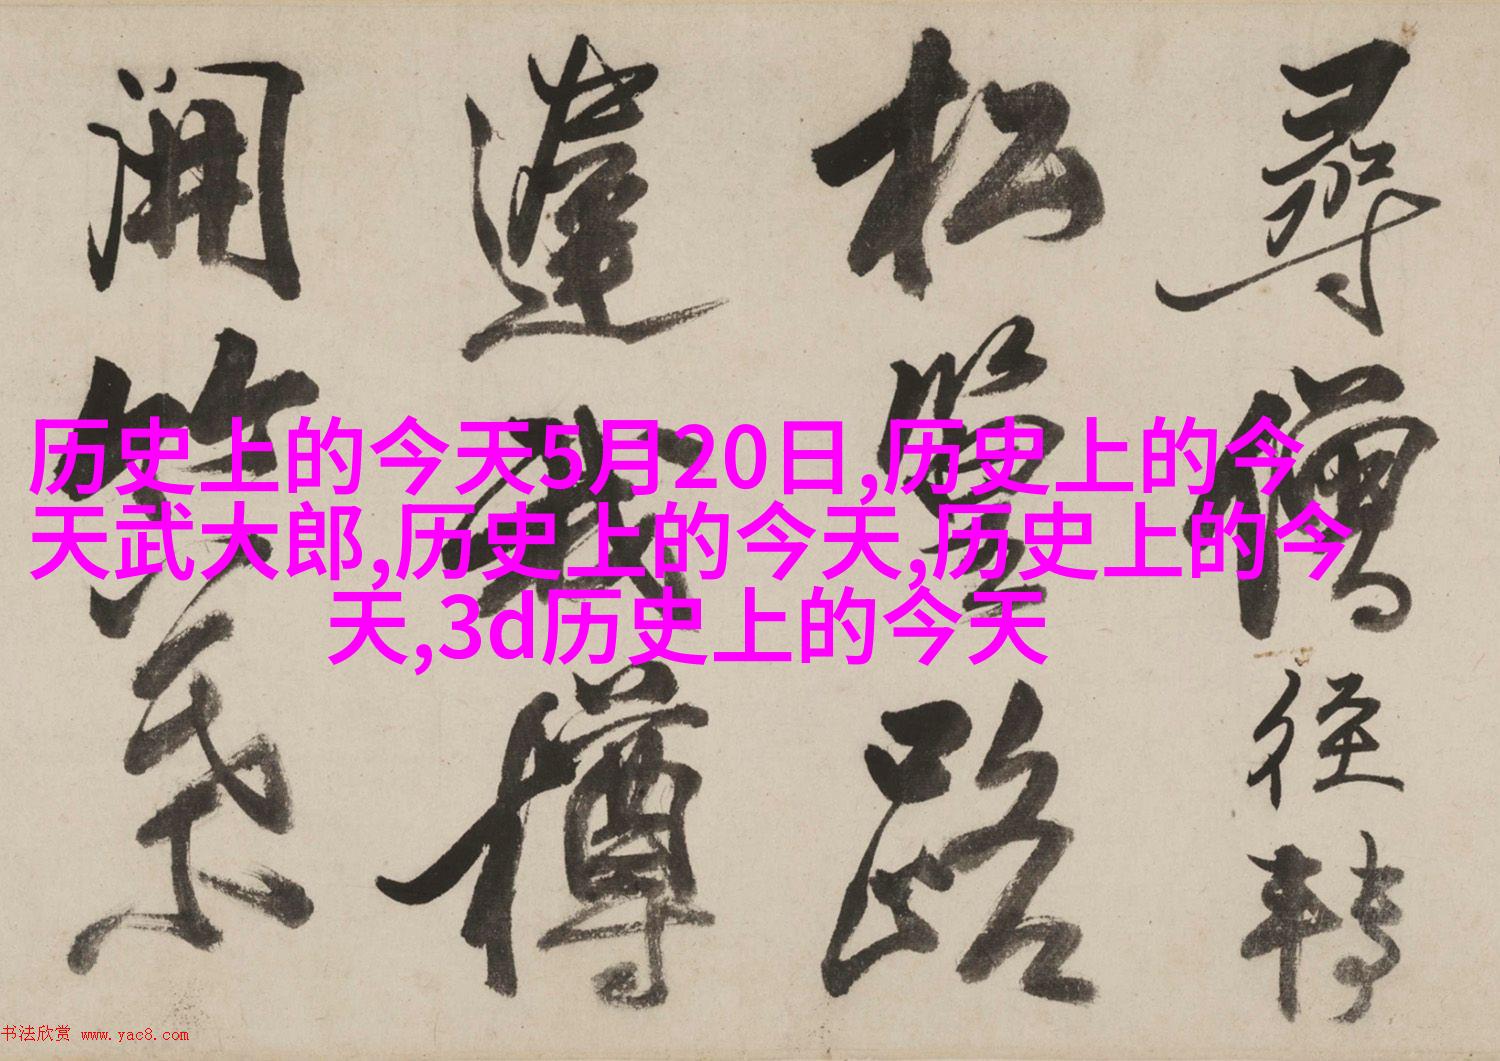 尋僧径轉
松路
樽
開
历史上的今天5月20日,历史上的今
天武大郎,历史上的今天,历史上的今
天,3d历史上的今天
书法欣赏 www.yac8.com